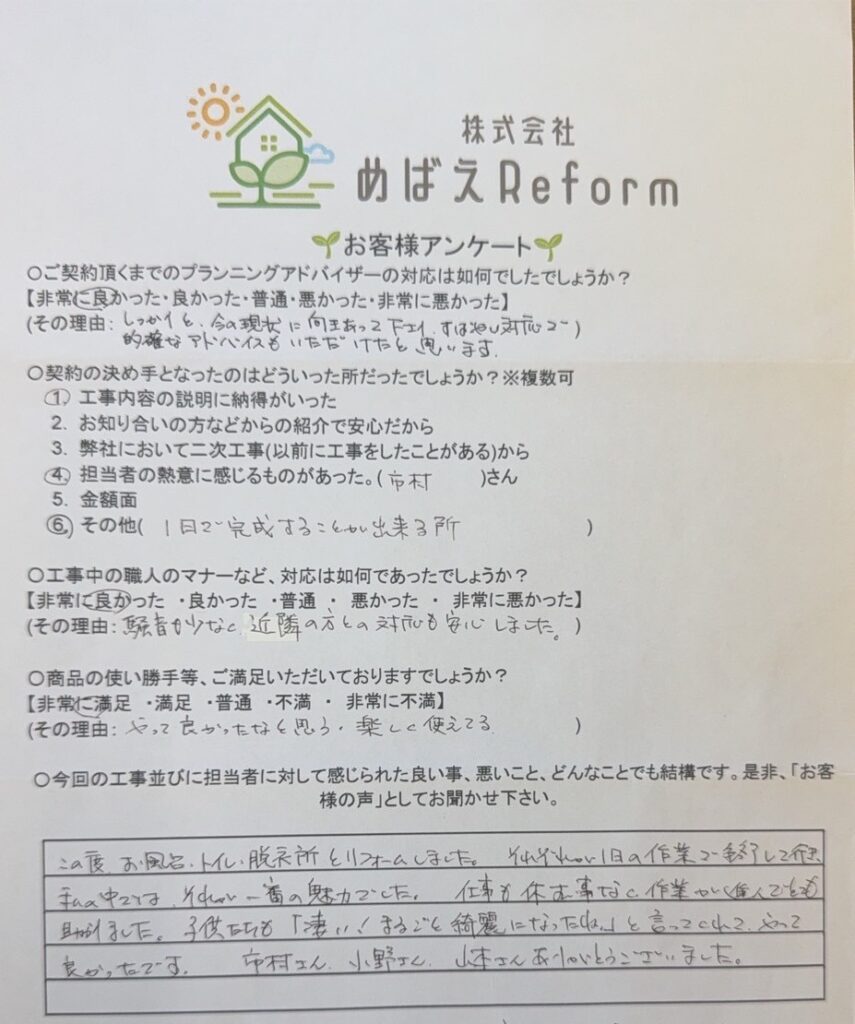 株式会社
めばえReform
お客様アンケート
〇ご契約頂くまでのプランニングアドバイザーの対応は如何でしたでしょうか?
【非常に良かった・良かった・普通・悪かった・非常に悪かった】
(その理由: しっかりと、今の現状に向きあって下さり、すばやい対応で)
的確なアドバイスもいただけたと思います。
〇契約の決め手となったのはどういった所だったでしょうか?※複数可
① 工事内容の説明に納得がいった
2. お知り合いの方などからの紹介で安心だから
3. 弊社において二次工事(以前に工事をしたことがある)から
④ 担当者の熱意に感じるものがあった。(市村 )さん
5. 金額面
⑥ その他( 1日で完成することが出来る所 )
〇工事中の職人のマナーなど、対応は如何であったでしょうか?
【非常に良かった ・良かった ・普通 ・ 悪かった ・ 非常に悪かった】
(その理由: 騒音が少なく、近隣の方との対応も安心しました。)
〇商品の使い勝手等、ご満足いただいておりますでしょうか?
【非常に満足 ・満足 ・普通 ・不満 ・ 非常に不満】
(その理由: やって良かったなと思う、楽しく使えてる )
〇今回の工事並びに担当者に対して感じられた良い事、悪いこと、どんなことでも結構です。是非、「お客
様の声」としてお聞かせ下さい。
この度、お風呂、トイレ、脱衣所とリフォームしました。 それぞれが1日の作業で終了して
私の中では、それが一番の魅力でした。 仕事も休む事なく、作業が
助かりました。子供たちも「凄い!まるごと綺麗になったね」と言ってくれて、やって
良かったです。 市村さん、小野さん、山本さんありがとうございました。